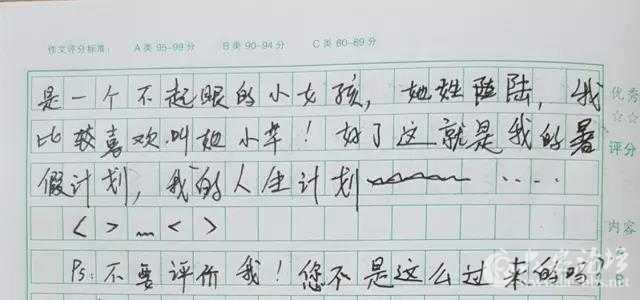 作文评分标准: A类 95-99分 B类 90-94分 C类 80-89分
是一个不起眼的小女孩,她姓陆,我 优秀
☆☆
比较喜欢叫她小苹!好了这就是我的暑 评分
假计划,我的人生计划~~~~ ····
< > … < > 内容
Ps:不要评价我!您不是这么过来的吗?